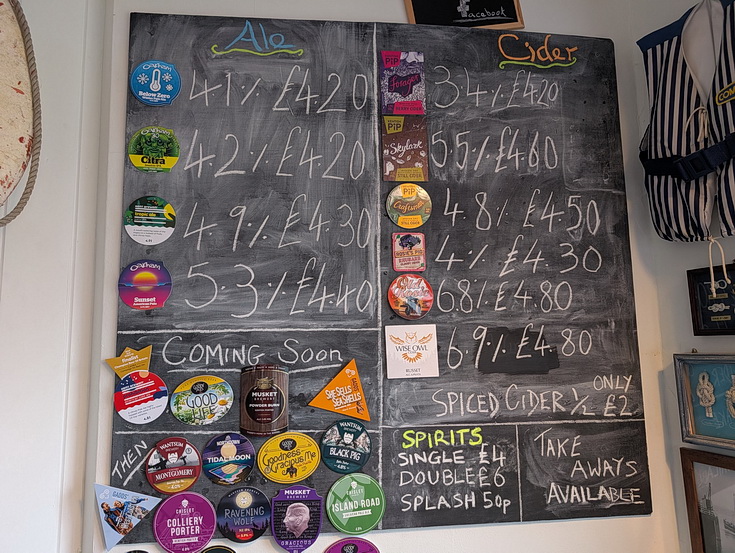 facebook
Ale
OAKHAM
Below Zero
4.1% £4.20
Citra
4.2% £4.20
4.9% £4.30
OAKHAM
Sunset
5.3% £4.40
Cider
PIP
Forager
3.4% £4.20
PIP
Skylark
5.5% £4.60
PIP
Craftsman
4.8 £4.50
ROSIE'S PIG
RHUBARB
4% £4.30
6.8% £4.80
WISE OWL
RUSSET
6.9% £4.80
ONLY
SPICED CIDER 1/2 £2
COMING SOON
GOOD
LIFE
MUSKET
BREWERY
POWDER BURN
SHE SELLS
SEASHELLS
THEN
WANTSUM
MONTGOMERY
TIDAL MOON
Goodness
Gracious Me
WANTSUM
BLACK PIG
GADDS'
COLLIERY
PORTER
RAVENING
WOLF
MUSKET
ISLAND ROAD
SPIRITS
SINGLE £4
DOUBLE £6
SPLASH 50p
TAKE
AWAYS
AVAILABLE